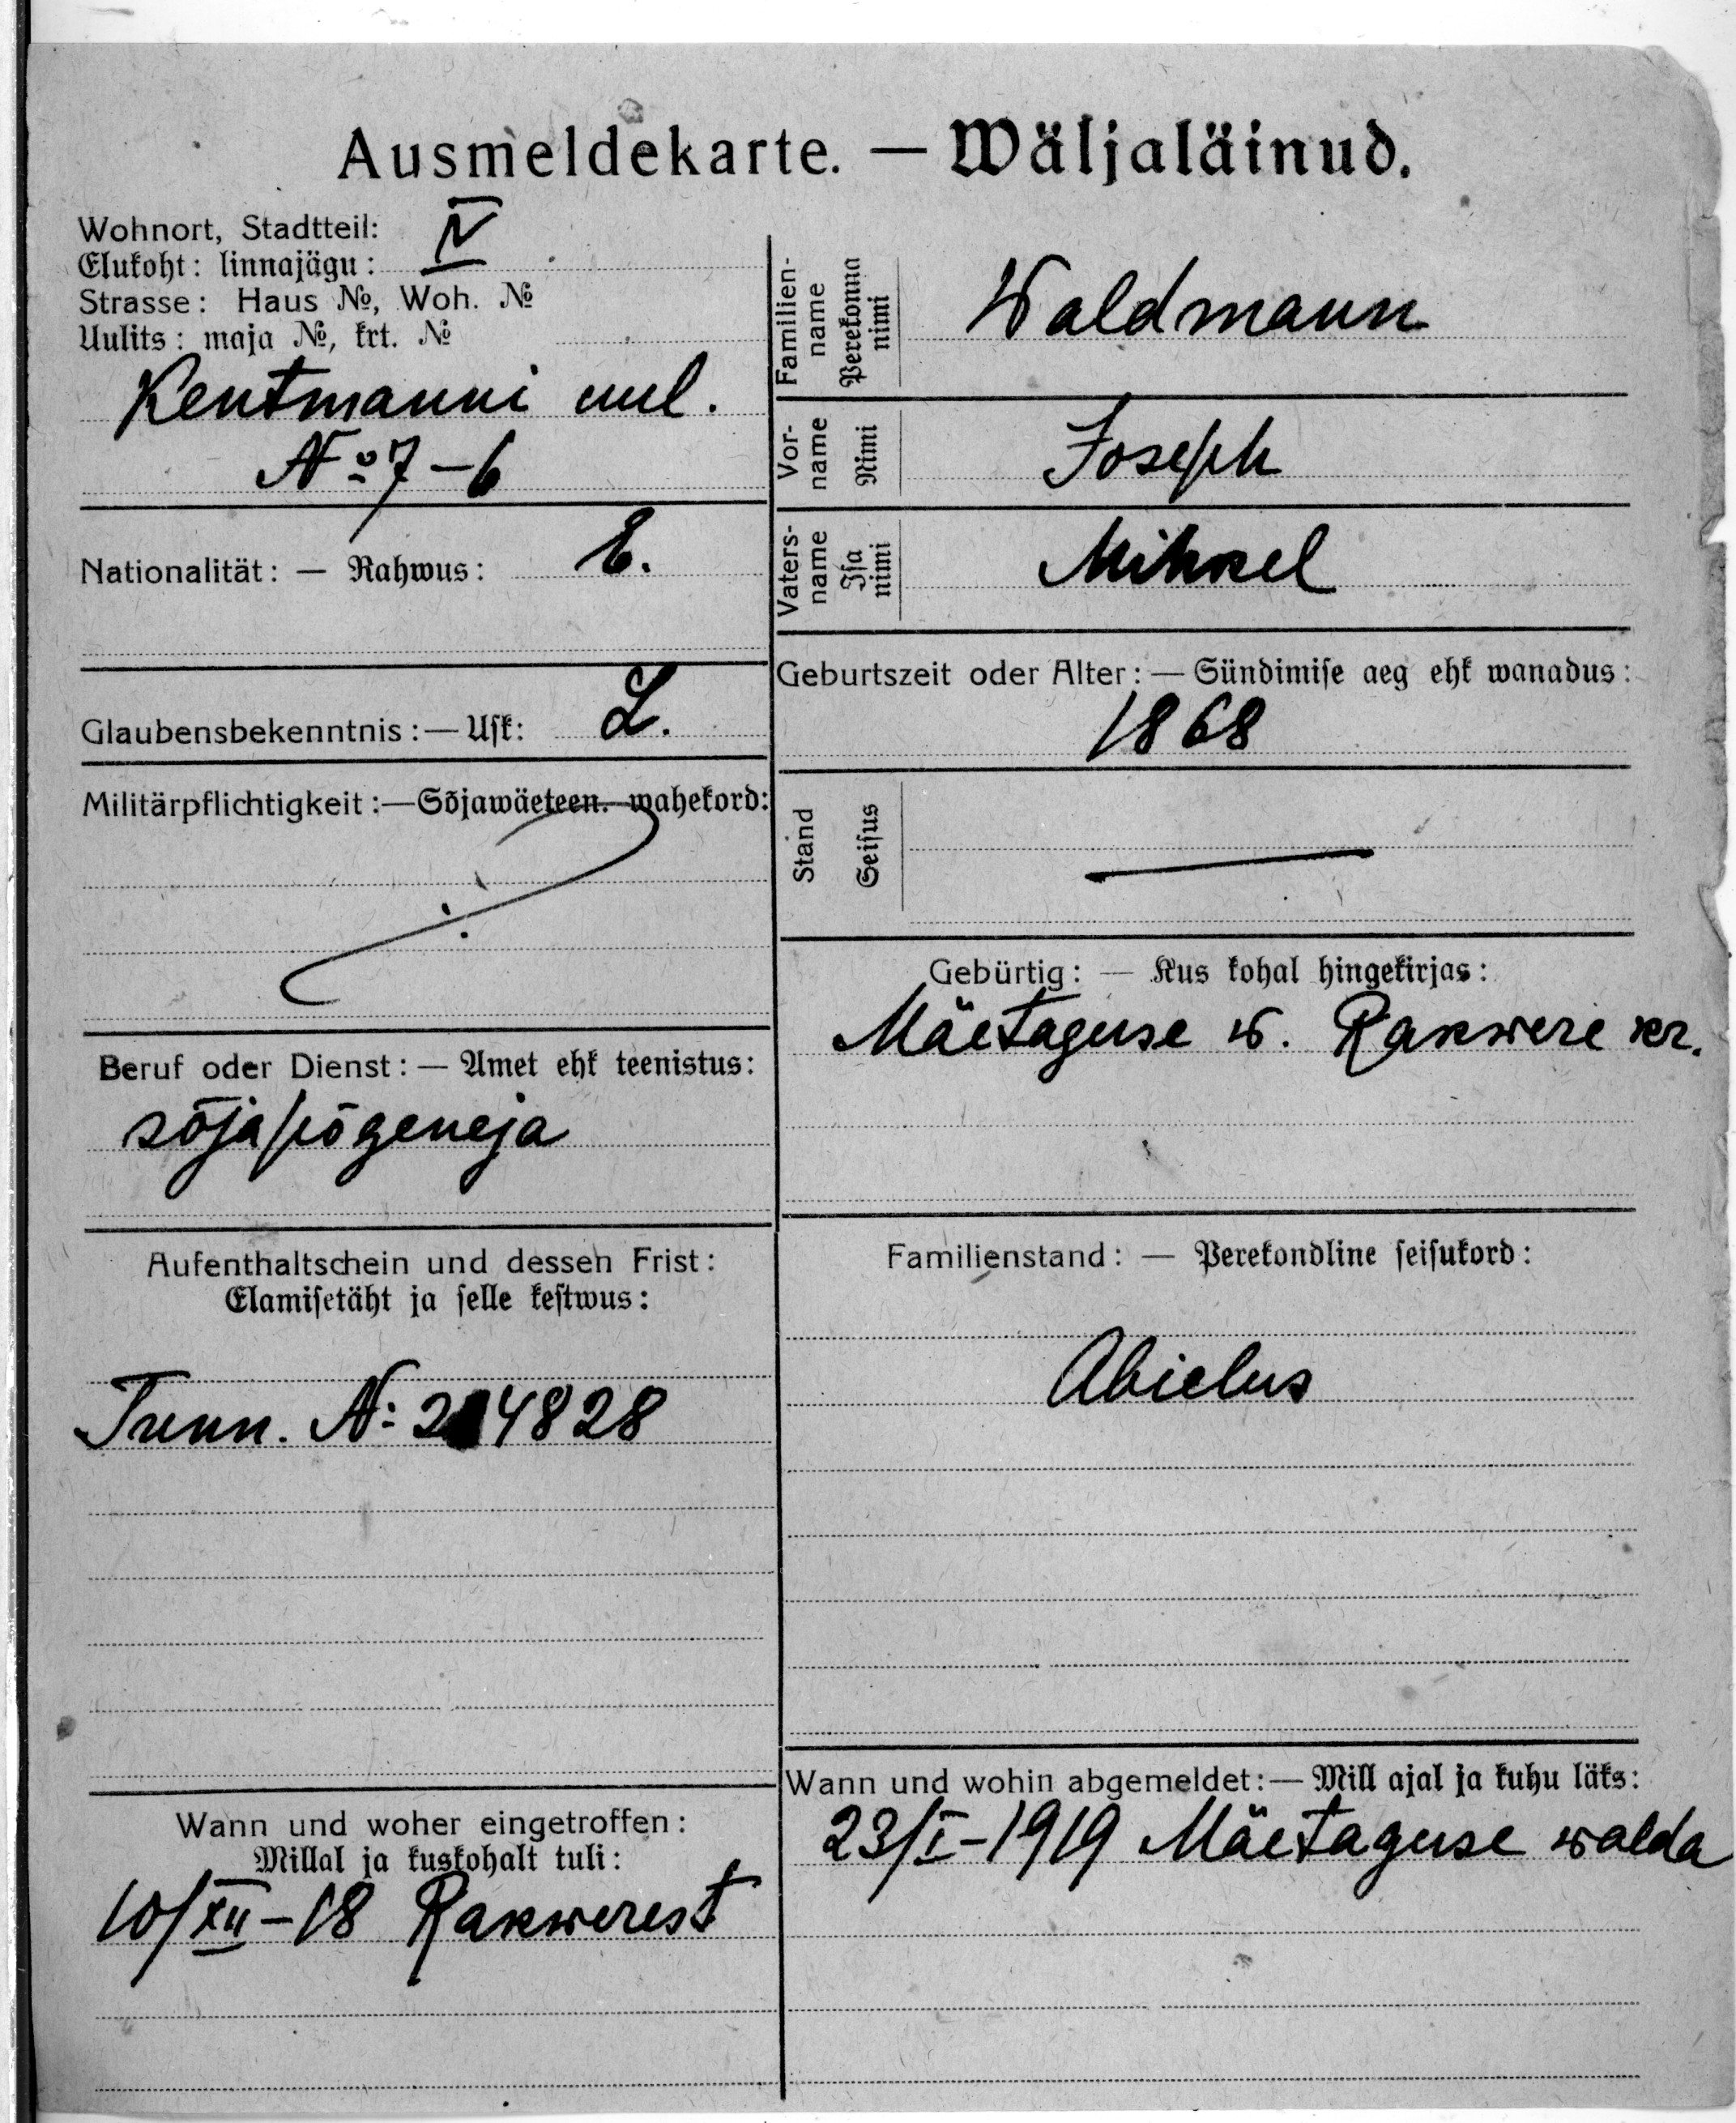 Ausmeldekarte. — Wäljaläinud.
Wohnort, Stadtteil:
Elukoht: linnajägu: IV
Strasse: Haus №, Woh. №
Uulits: maja №, krt. №
Kentmanni uul.
№ 7-6
Nationalität: — Rahwus: E.
Glaubensbekenntnis: — Usk: L.
Militärpflichtigkeit: — Sõjawäeteen. wahekord:
Beruf oder Dienst: — Amet ehk teenistus:
sõjapõgeneja
Aufenthaltschein und dessen Frist:
Elamisetäht ja selle kestwus:
Tunn. N: 2 4828
Wann und woher eingetroffen:
Millal ja kuskohalt tuli:
10/XII-18 Rakwerest
Familien-
name
Perekonna
nimi
Waldmann
Vor-
name
Nimi
Joseph
Vaters-
name
Isa
nimi
Mihkel
Geburtszeit oder Alter: — Sündimise aeg ehk wanadus:
1868
Stand
Seisus
—
Gebürtig: — Kus kohal hingekirjas:
Mäetaguse w. Rakwere kr.
Familienstand: — Perekondline seisukord:
Abielus
Wann und wohin abgemeldet: — Mill ajal ja kuhu läks:
23/I-1919 Mäetaguse walda